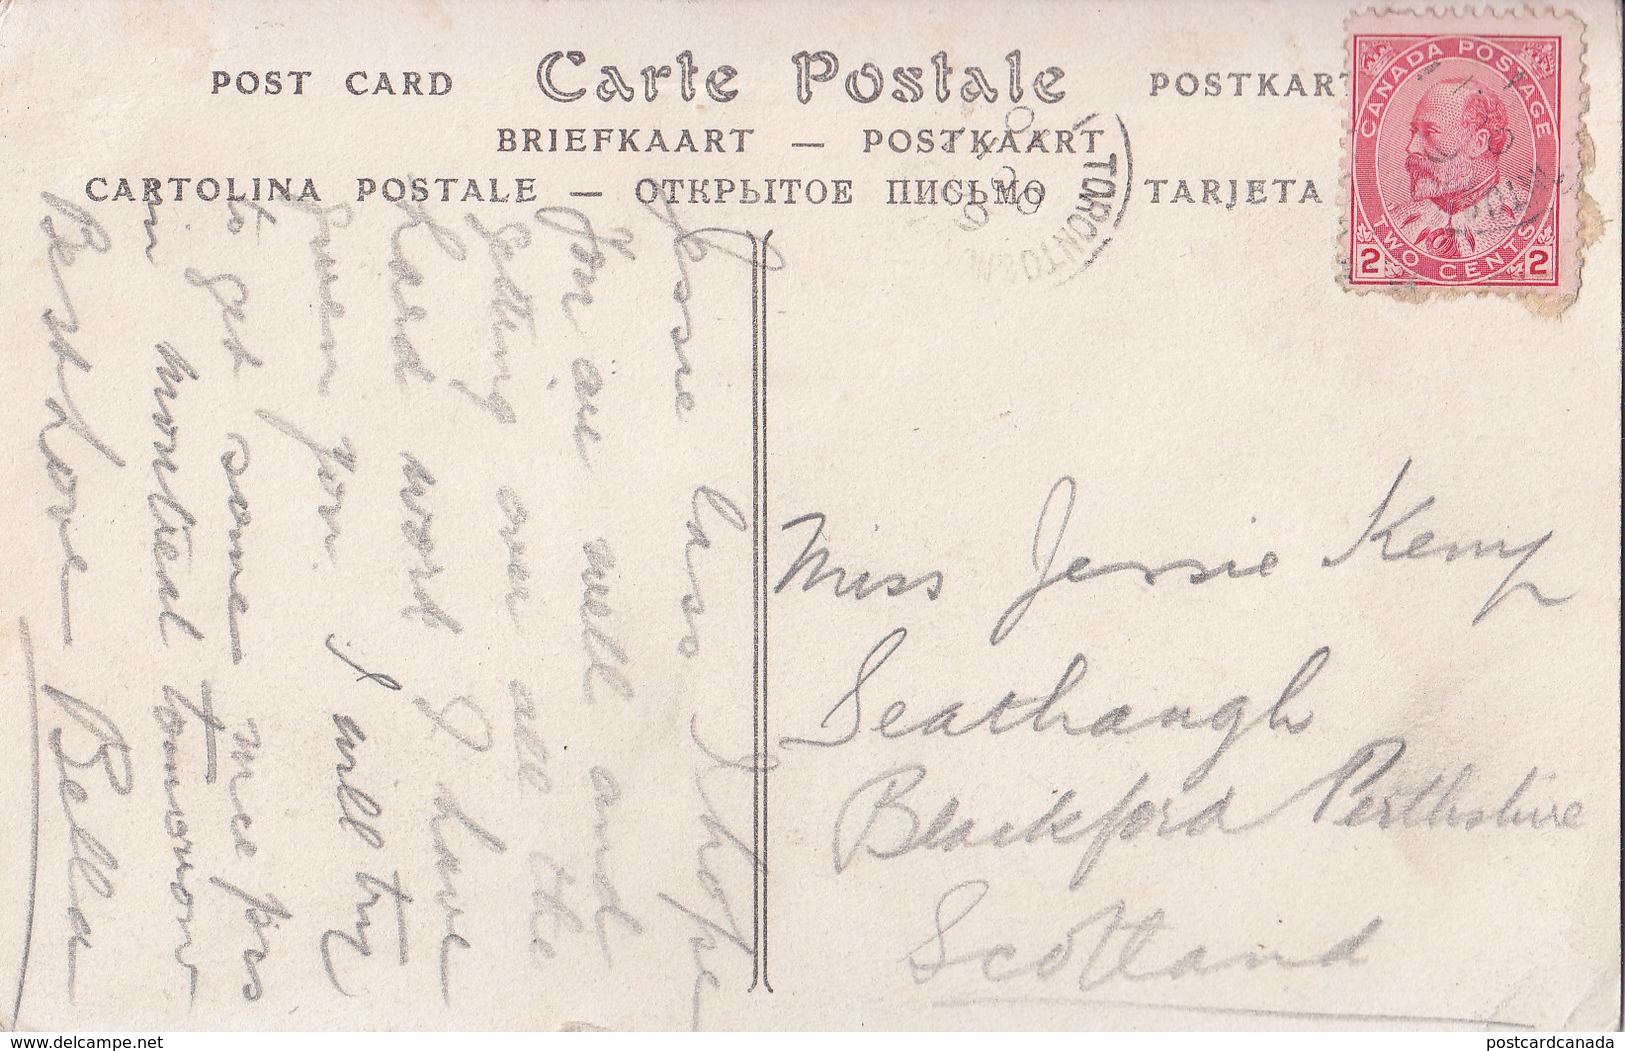 POST CARD Carte Postale POSTKAR
BRIEFKAART — POSTKAART
CARTOLINA POSTALE — ОТКРЫТОЕ ПИСЬМО TARJETA
CANADA POSTAGE
2 TWO CENTS 2
TORONTO
Jessie lass I hope
you are well and
getting over all the
hard work I have
given you I will try
to get some nice pcs
in montreal tomorrow
Best Love Bella
Miss Jessie Kemp
Seathaugh
Blackford Perthshire
Scotland
www.delcampe.net
postcardcanada